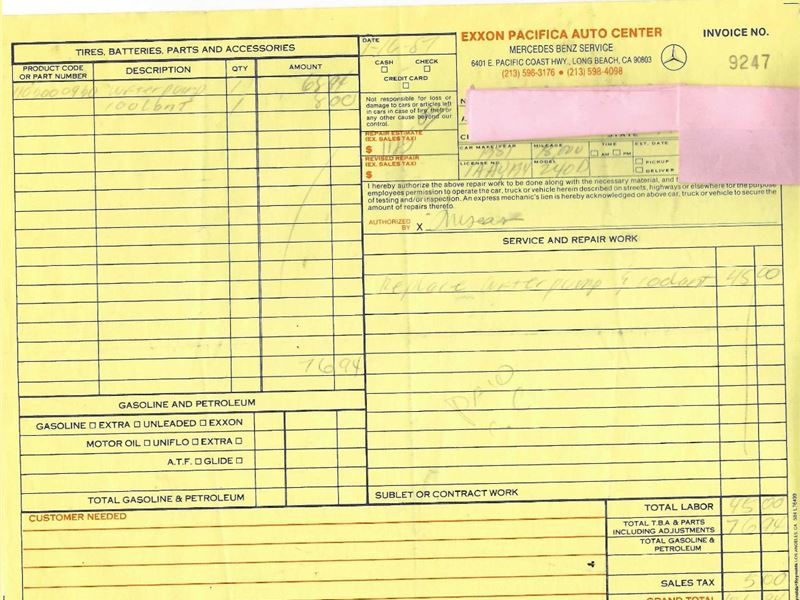 TIRES, BATTERIES, PARTS AND ACCESSORIES
PRODUCT CODE OR PART NUMBER DESCRIPTION QTY AMOUNT
waterpump 1
coolant 1 8 00
76 94
GASOLINE AND PETROLEUM
GASOLINE □ EXTRA □ UNLEADED □ EXXON
MOTOR OIL □ UNIFLO □ EXTRA □
A.T.F. □ GLIDE □
TOTAL GASOLINE & PETROLEUM
CUSTOMER NEEDED
DATE
1-16-87
CASH □ CHECK □
CREDIT CARD □
Not responsible for loss or
damage to cars or articles left
in cars in case of fire, theft or
any other cause beyond our
control.
REPAIR ESTIMATE
(EX. SALES TAX)
$
REVISED REPAIR
(EX. SALES TAX)
$
EXXON PACIFICA AUTO CENTER
MERCEDES BENZ SERVICE
6401 E. PACIFIC COAST HWY., LONG BEACH, CA 90803
(213) 596-3176 • (213) 598-4098
INVOICE NO.
9247
STATE
CAR MAKE/YEAR MILEAGE TIME EST. DATE
□ AM □ PM
□ PICKUP
LICENSE NO. MODEL □ DELIVER
240D
I hereby authorize the above repair work to be done along with the necessary material, and
employees permission to operate the car, truck or vehicle herein described on streets, highways or elsewhere for the purpose
of testing and/or inspection. An express mechanic's lien is hereby acknowledged on above car, truck or vehicle to secure the
amount of repairs thereto.
AUTHORIZED BY X
SERVICE AND REPAIR WORK
Replace waterpump & coolant 45 00
PAID
SUBLET OR CONTRACT WORK
TOTAL LABOR 45 00
TOTAL T.B.A & PARTS INCLUDING ADJUSTMENTS 76 94
TOTAL GASOLINE & PETROLEUM
SALES TAX 5 00
GRAND TOTAL